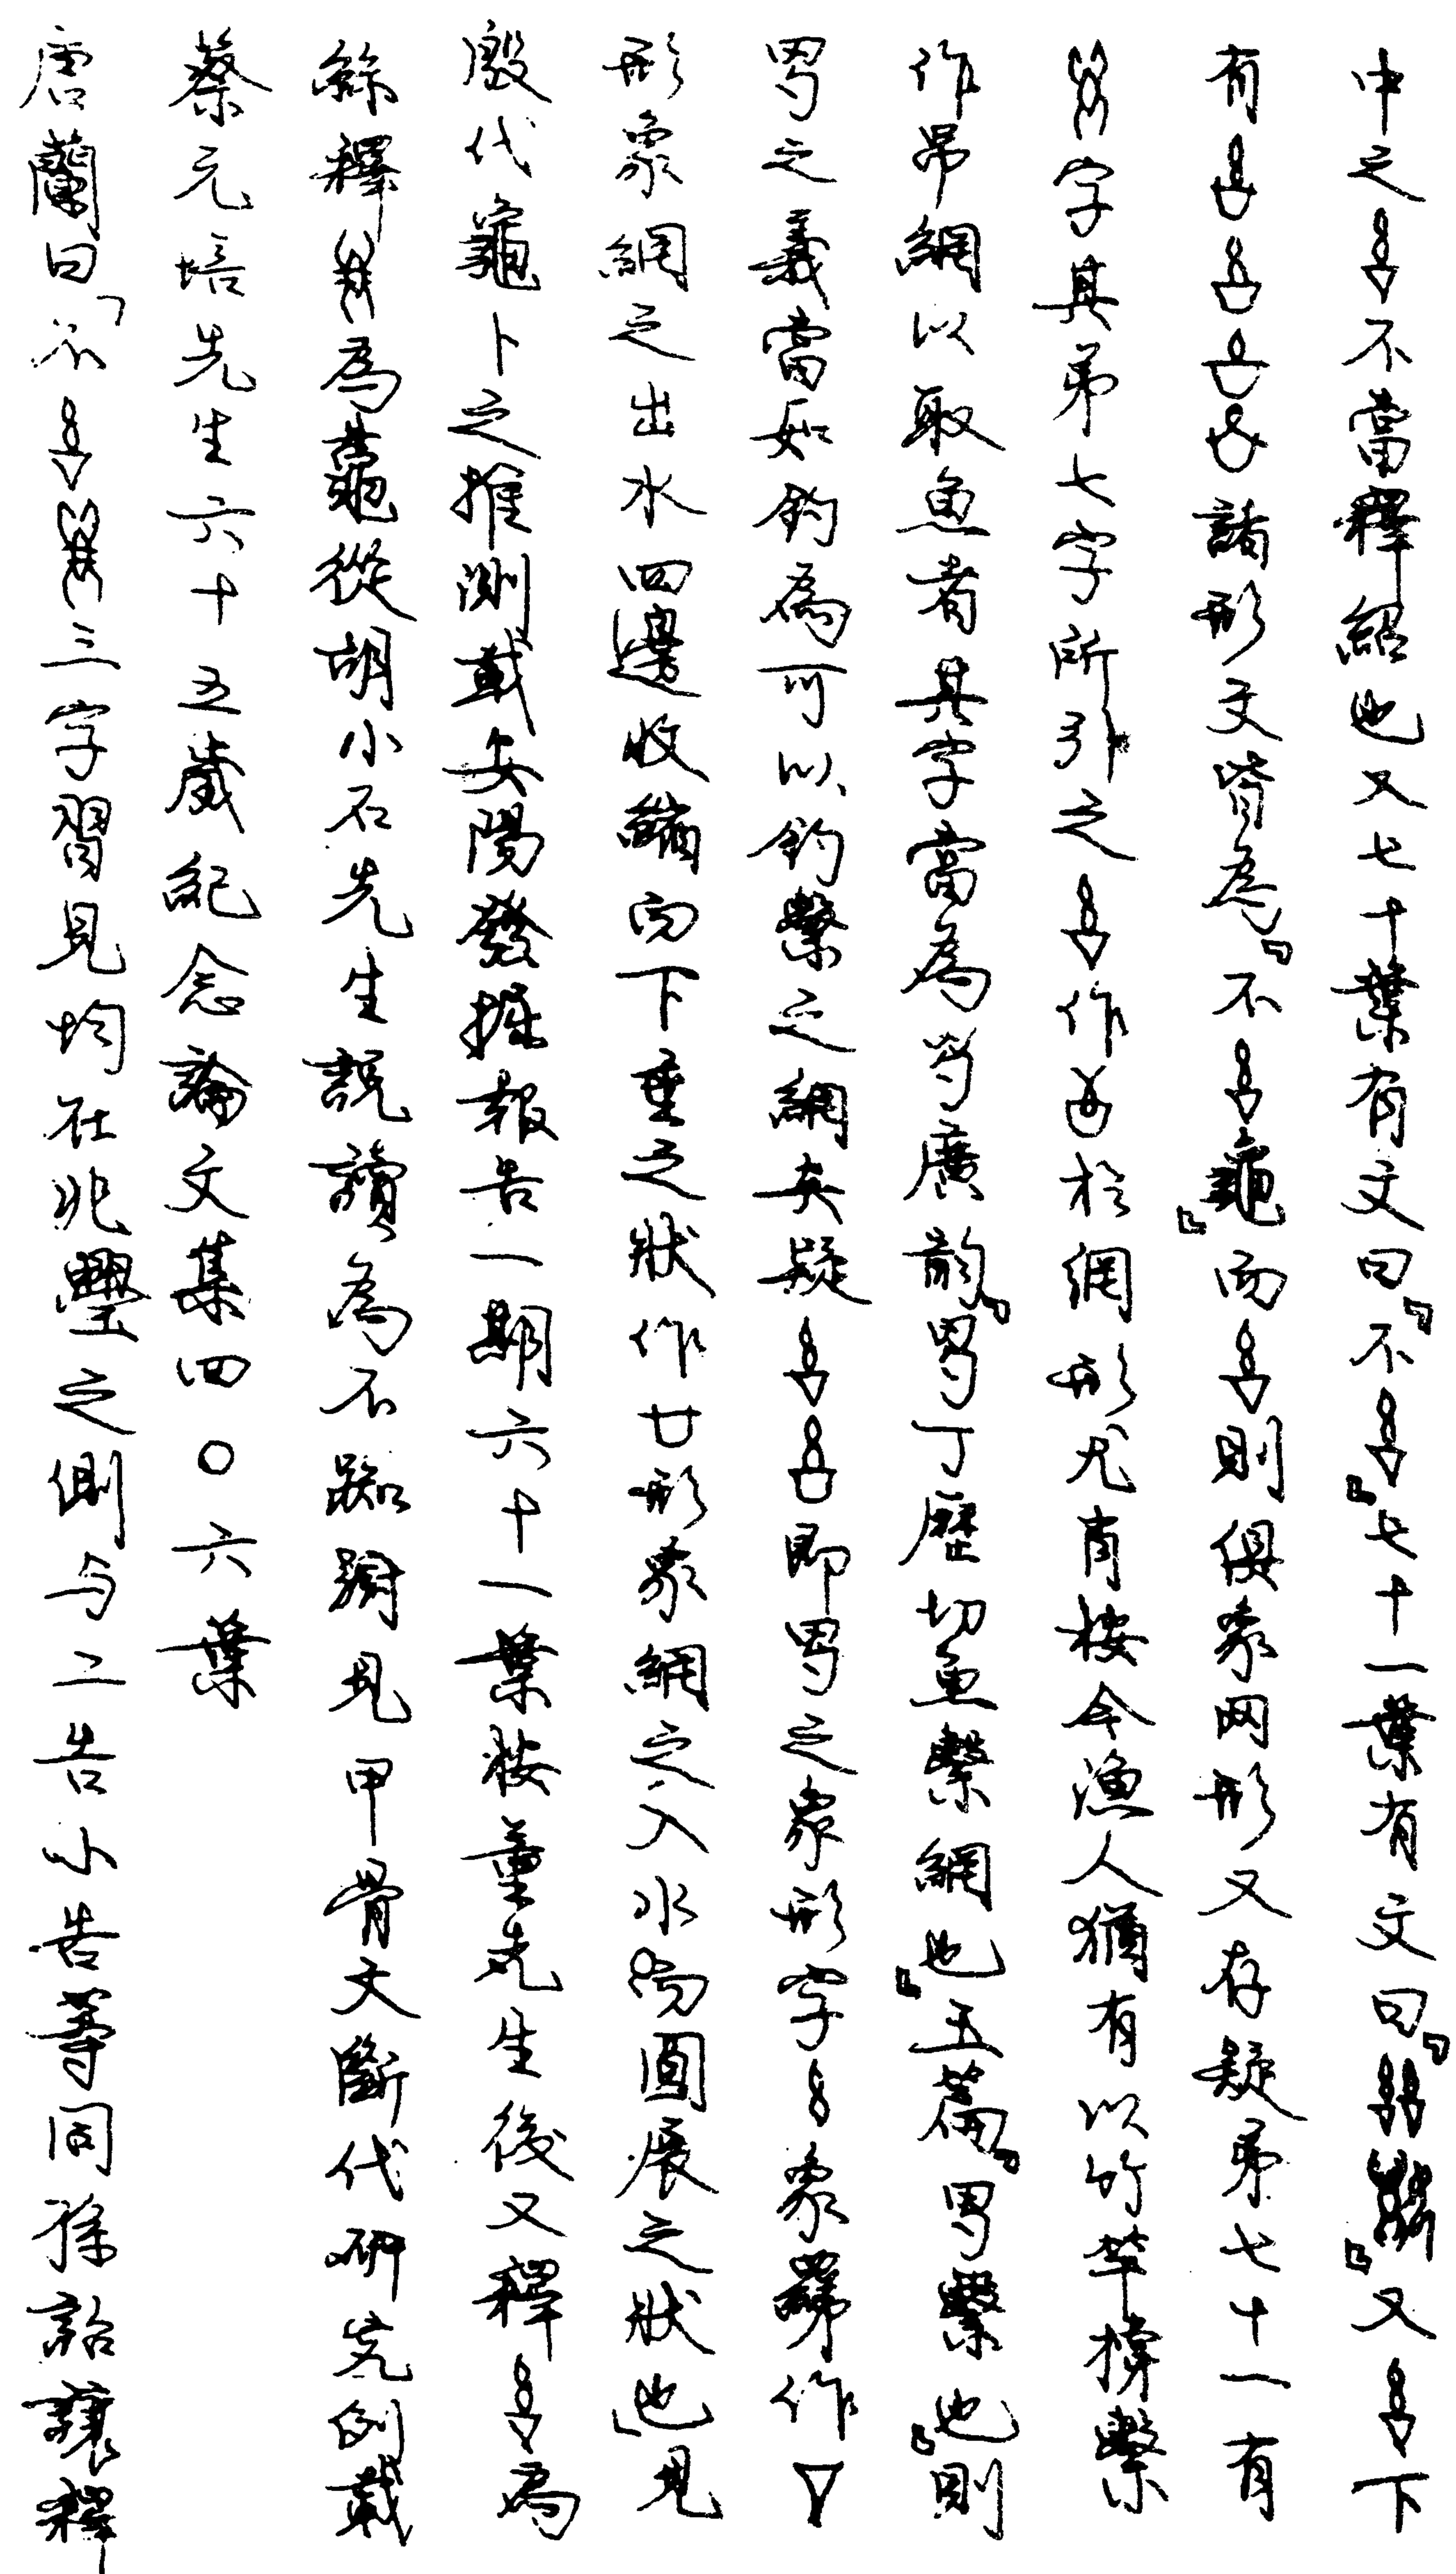 中之不當釋紹也又七十葉有文曰『不』七十一葉有文曰『』又下
有諸形文皆為『不龜』而則俱象网形又存疑弟七十一有
字其弟七字所引之作於網形尤肖按今漁人猶有以竹竿橕繫
作吊網以取魚者其字當為䍄廣韵『䍄丁歷切魚繫網也』玉篇『䍄繫也』則
䍄之義當如釣為可以釣繫之網矣疑即䍄之象形字象繫作
形象網之出水四邊收縮而下垂之狀作廿形象網之入水而圓展之狀也」見
殷代龜卜之推測載安陽發掘報告一期六十一葉按董先生後又釋為
緐釋為鼄從胡小石先生說讀為不踟躕見甲骨文斷代研究例載
蔡元培先生六十五歲紀念論文集四〇六葉
唐蘭曰「不三字習見均在兆璺之側与二告小告等同孫詒讓釋